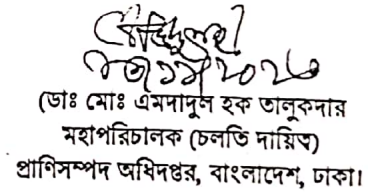 (ডাঃ মোঃ এমদাদুল হক তালুকদার
মহাপরিচালক (চলতি দায়িত্ব)
প্রাণিসম্পদ অধিদপ্তর, বাংলাদেশ, ঢাকা।